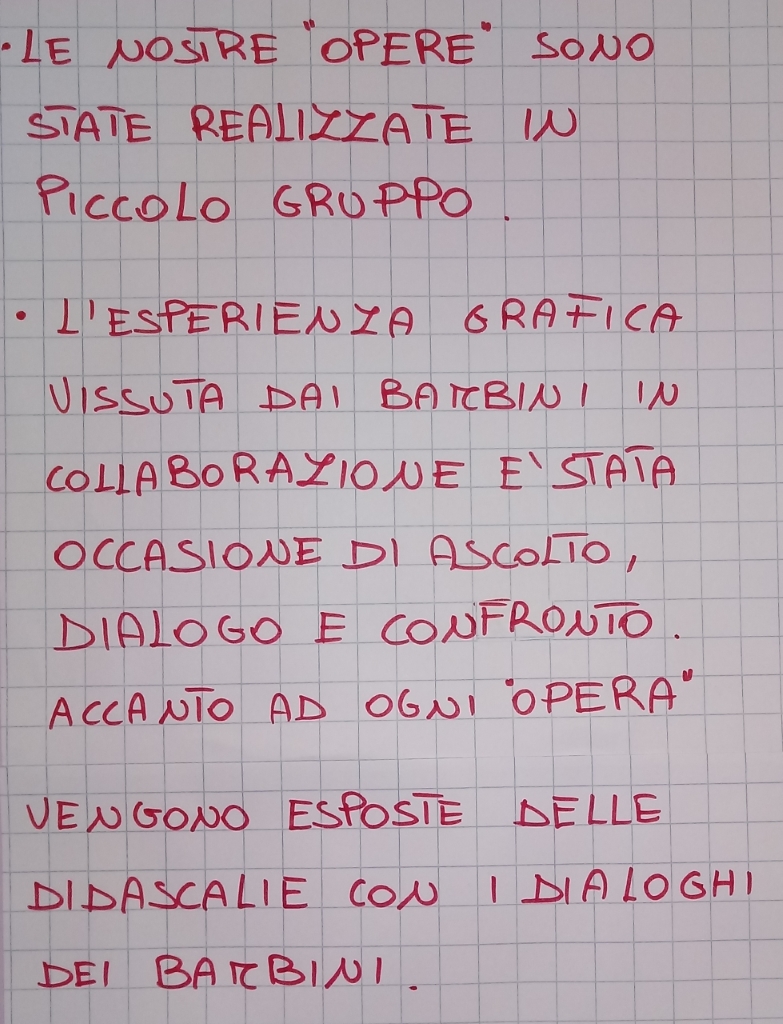 •LE NOSTRE "OPERE" SONO
STATE REALIZZATE IN
PICCOLO GRUPPO.
• L'ESPERIENZA GRAFICA
VISSUTA DAI BAMBINI IN
COLLABORAZIONE E' STATA
OCCASIONE DI ASCOLTO,
DIALOGO E CONFRONTO.
ACCANTO AD OGNI "OPERA"
VENGONO ESPOSTE DELLE
DIDASCALIE CON I DIALOGHI
DEI BAMBINI.